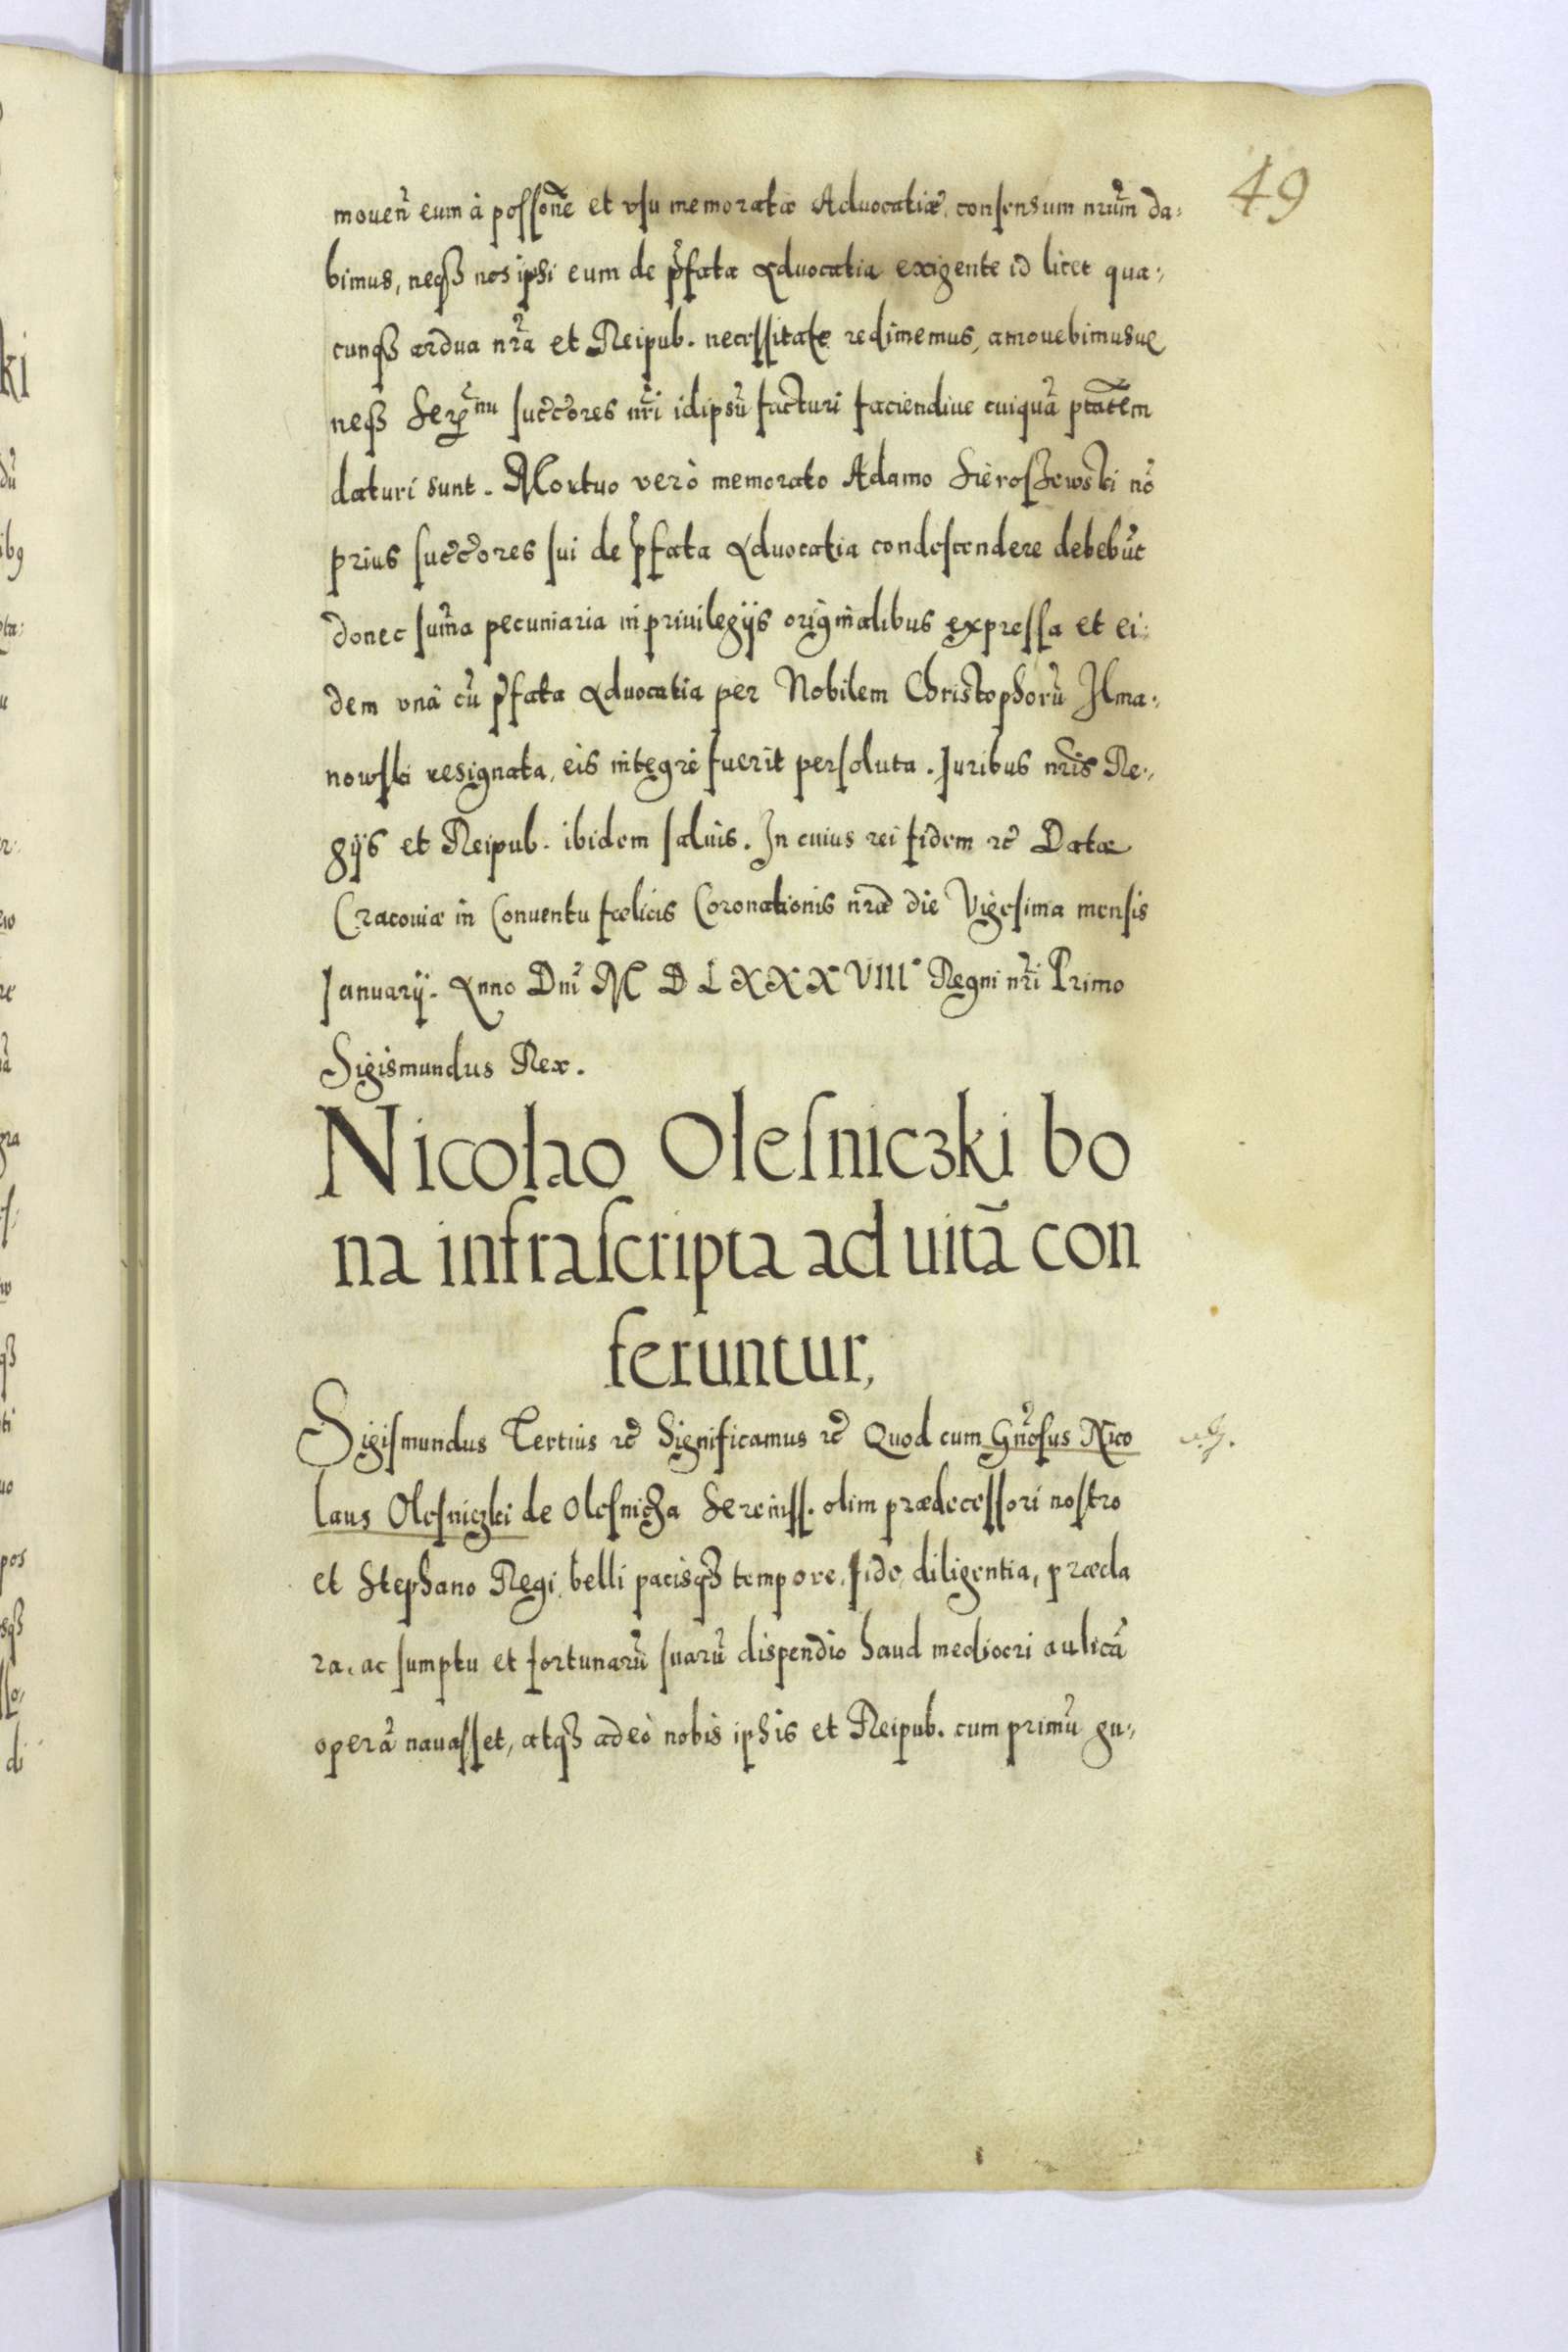 49
mouen̄ eum à possone̅ et vsu memoratæ Aduocatiæ, consensum nrum̄ da:
bimus, neqȝ nos ipsi eum de p̄fata Aduocatia exigente id licet qua:
cunqȝ ardua nr̄a et Reipub. necessitate redimemus, amouebimusue
neqȝ Ser̄mi succ̄ores nr̄i idipsū facturi faciendiue cuiquā ptatēm
daturi sunt. Mortuo verò memorato Adamo Sieroszewski nō
prius succ̄ores sui de p̄fata Aduocatia condescendere debebūt
donec sum̄a pecuniaria in priuilegijs originalibus expressa et ei:
dem vnâ cū p̄fata Aduocatia per Nobilem Christophorū Ilma:
nowski resignata, eis integrè fuerit persoluta. Iuribus nr̄is Re:
gijs et Reipub. ibidem saluis. In cuius rei fidem ꝛc̄ Datæ
Cracouiæ in Conuentu fœlicis Coronationis nr̄æ die Vigesima mensis
Ianuarij. Anno Dnī M D L X X X VIII° Regni nr̄i Primo
Sigismundus Rex.
Nicolao Olesniczki bo
na infrascripta ad uitā con
feruntur,
Sigismundus Tertius ꝛc̄ Significamus ꝛc̄ Quod cum Gn̄osus Nico
laus Olesniczki de Olesnicza Sereniss. olim prædecessori nostro
et Stephano Regi, belli pacisqȝ tempore, fide, diligentia, præcla
ra, ac sumptu et fortunarū suarū dispendio haud mediocri aulicā
operā nauasset, atqȝ adeò nobis ipsis et Reipub. cum primū gu: